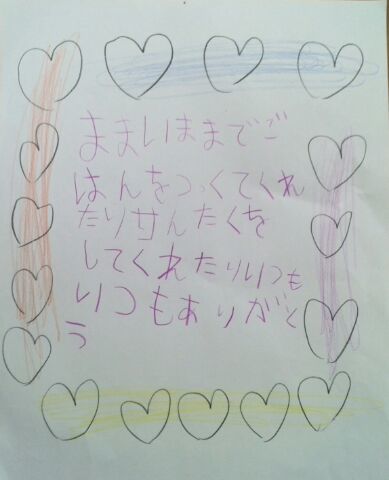 ままいままでご
はんをつっくてくれ
たりせんたくを
してくれたりいつも
いつもありがと
う